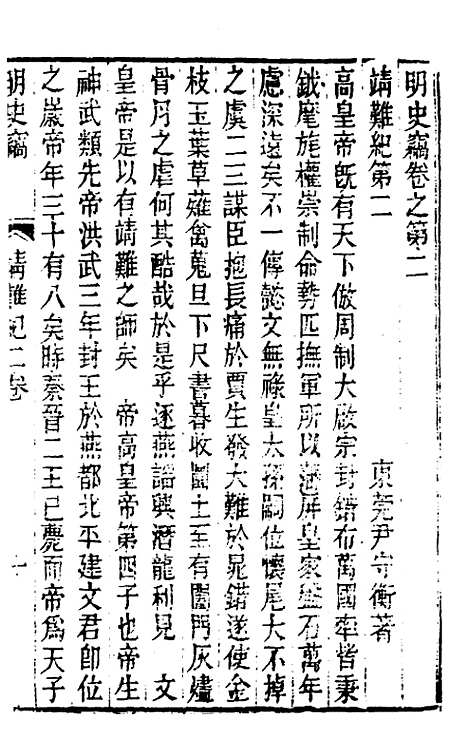 明史竊卷之第二
靖難紀第二
東莞尹守衡著
高皇帝旣有天下倣周制大啟宗封錯布萬國率皆秉
鉞麾旄權崇制命勢匹撫軍所以藩屏皇家盤石萬年
慮深遠矣不一傳懿文無祿皇太孫嗣位懷尾大不掉
之虞二三謀臣抱長痛於賈生發大難於晁錯遂使金
枝玉葉草薙禽蒐旦下尺書暮收圜土至有闔門灰燼
骨月之虐何其酷哉於是乎逐燕謡興潛龍利見 文
皇帝是以有靖難之師矣 帝高皇帝第四子也帝生
神武類先帝洪武三年封王於燕都北平建文君卽位
之歲帝年三十有八矣時秦晉二王已薨而帝爲天子
明史竊 靖難紀二卷 一